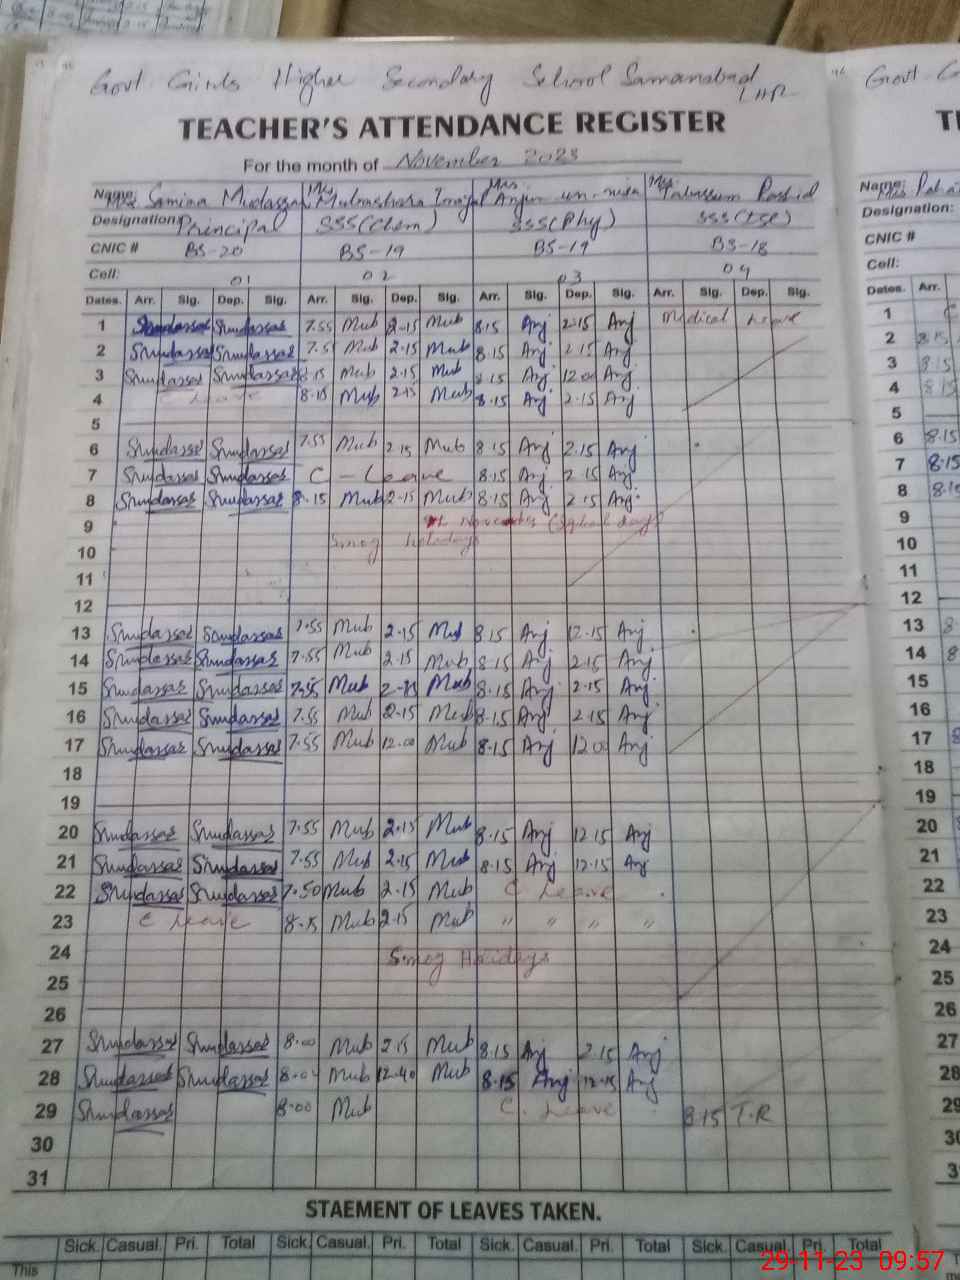 Govt Girls Higher Secondary School Samanabad LHR
TEACHER'S ATTENDANCE REGISTER
For the month of November 2023
Name: Mrs Samina Mudassar Mrs Mubashara Mrs Anjum-un-nisa Mrs Tabassum Rashid
Designation: Principal SSS(Chem) SSS(Phy) SSS(
CNIC # BS-20 BS-19 BS-19 BS-18
Cell: 01 02 03 04
Dates. Arr. Sig. Dep. Sig. Arr. Sig. Dep. Sig. Arr. Sig. Dep. Sig. Arr. Sig. Dep. Sig.
1 Smudassar Smudassar 7.55 Mub 2-15 Mub 8.15 Anj 2.15 Anj Medical Leave
2 Smudassar Smudassar 7.5 Mub 2.15 Mub 8.15 Anj 2.15 Anj
3 Smudassar Smudassar 8.15 Mub 2.15 Mub 8.15 Anj 12.00 Anj
4 Leave 8.15 Mub 2.15 Mub 8.15 Anj 2.15 Anj
5
6 Smudassar Smudassar 7.55 Mub 2.15 Mub 8.15 Anj 2.15 Anj
7 Smudassar Smudassar C - Leave 8.15 Anj 2.15 Anj
8 Smudassar Smudassar 8.15 Mub 2-15 Mub 8.15 Anj 2.15 Anj
9 November (Iqbal day)
10 Smog holidays
11
12
13 Smudassar Smudassar 7.55 Mub 2.15 Mub 8.15 Anj 12.15 Anj
14 Smudassar Smudassar 7.55 Mub 2.15 Mub 8.15 Anj 2.15 Anj
15 Smudassar Smudassar 7.55 Mub 2-15 Mub 8.15 Anj 2.15 Anj
16 Smudassar Smudassar 7.55 Mub 2.15 Mub 8.15 Anj 2.15 Anj
17 Smudassar Smudassar 7.55 Mub 12.00 Mub 8.15 Anj 12.00 Anj
18
19
20 Smudassar Smudassar 7.55 Mub 2.15 Mub 8.15 Anj 12.15 Anj
21 Smudassar Smudassar 7.55 Mub 2.15 Mub 8.15 Anj 12.15 Anj
22 Smudassar Smudassar 7.50 Mub 2.15 Mub C Leave
23 C Leave 8.15 Mub 2.15 Mub " " " "
24 Smog Holidays
25
26
27 Smudassar Smudassar 8.00 Mub 2.15 Mub 8.15 Anj 2.15 Anj
28 Smudassar Smudassar Mub 12.40 Mub 8.15 Anj 12.15 Anj
29 Smudassar 8.00 Mub C. Leave 8.15 T.R
30
31
STAEMENT OF LEAVES TAKEN.
Sick. Casual. Pri. Total Sick. Casual. Pri. Total Sick. Casual. Pri. Total Sick. Casual Pri. Total
This
Govt
Name: Mrs
Designation:
CNIC #
Cell:
Dates. Arr.
1
2 8.15
3 8.15
4 8.15
5
6 8.15
7 8.15
8 8.15
9
10
11
12
13 8
14 8
15
16
17 8
18
19
20
21
22
23
24
25
26
27
28
29
30
29-11-23 09:57